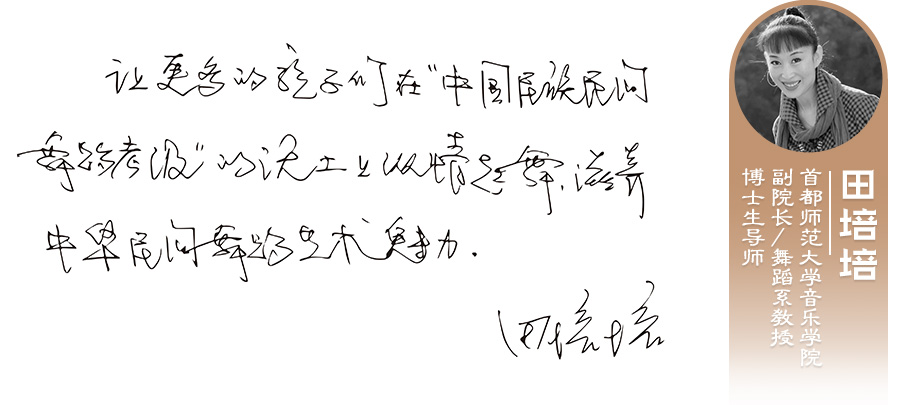 让更多的孩子们在"中国民族民间
舞蹈考级"的沃土上以情起舞,滋养
中华民间舞蹈艺术魅力.
田培培
田培培
首都师范大学音乐学院
副院长/舞蹈系教授
博士生导师